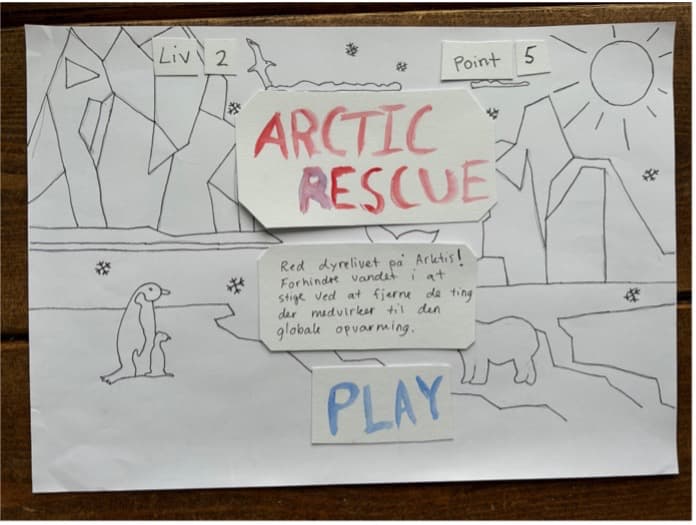 Liv 2
Point 5
ARCTIC
RESCUE
Red dyrelivet på Arktis!
Forhindre vandet i at
stige ved at fjerne de ting
der medvirker til den
globale opvarming.
PLAY